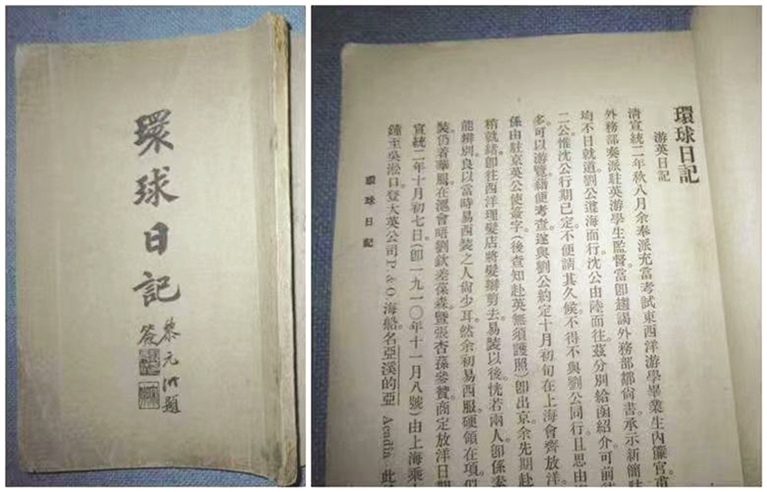 環球日記
黎元洪題
簽
環球日記
游英日記
清宣統二年秋八月余奉派充當考試東西洋游學畢業生內簾官甫
外務部奏派駐英游學生監督當即趨謁外務部鄒尚書承示新簡駐
均不日就道劉公遵海而行沈公由陸而往茲分別給函紹介可前往
二公惟沈公行期已定不便請其久候不得不與劉公同行且思由海
多可以游覽藉便考查遂與劉公約定十月初旬在上海會齊放洋
係由駐京英公使簽字(後查知赴英無須護照)即出京余先期赴
稍就緒即往西洋理髮店將髮辮剪去易裝以後恍若兩人即係素
能辨別良以當時易西裝之人尙少耳然余初易西服硬領在項
裝仍著華風在滬會晤劉欽差葆森暨張杏蓀參贊商定放洋日期
宣統二年十月初七日(卽一九一〇年十一月八號)由上海乘
鐘至吳淞口登大英公司P.&O.海船名亞溪的亞 Acadia 此
環球日記